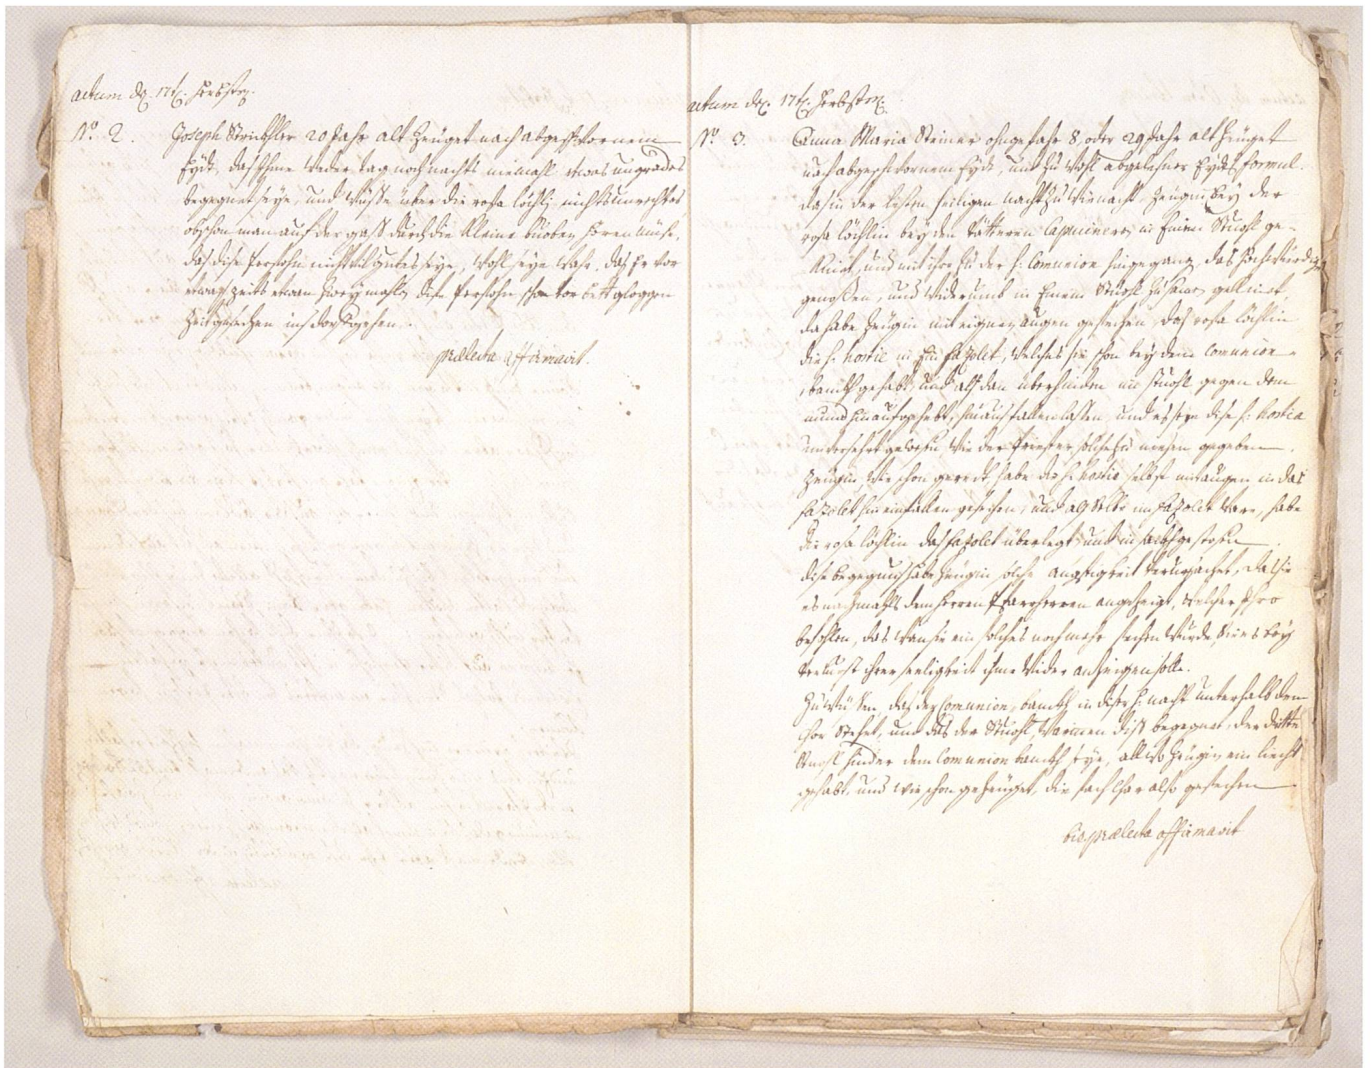 actum dẽ 17t. Herbstm.
No. 2. Joseph Streübler 20 Jahr alt Zeüget nach abgeschwornem
Eydt, das Ihme weder tag noch nachts niemahl etwas ungrades
begegnet seye, und wüsse über die rosa löchli nichts unrechtes
obschon man auf der gass durch die kleine buoben hören müsse,
das dise Persohn nicht vil guotes seye, wohl seye wahr, das Er vor
etwas zeits etwan zwey mahl dise Persohn schon vor bettgloggen
Zeit gesechen ins dorf gehen.
prælecta affirmavit.
actum dẽ 17t. Herbstm.
No. 3. Anna Maria Steiner ohngefahr 8, oder 29 Jahr alt Zeüget
nach abgeschwornem Eydt, und zu wohl abgelesner Eydts formul.
das in der letsten heiligen nacht zu wienacht, Zeügin bey der
rosa löchlin bey den Vätteren Capucineren in Einem Stuohl ge-
kniet, und mit ihro zu der h: Comunion hingegangen, das hochwürdige
genossen, und widerumb in Einem Stuohl zuhamen gekniet,
da habe Zeügin mit eignen augen gesechen, das rosa löchlin
die h: hostie in ein fazolet, welches sie schon bey dem Comunion
banckh gehabt, und alsdan überhinden im stuohl gegen dem
mund hinauf gehebt, hinaus fallen lassen, und es seye dise h: hostia
unversehrt gewesen, wie der Priester solche zu niesen gegeben.
Zeügin, wie schon geredt habe die h: hostie selbst mit augen in das
fazolet hinein fallen gesechen, und als selbe im fazolet ware, habe
die rosa löchlin das fazolet überlegt, und in sackh gestossen.
dise begegnus habe Zeügin solche angstigkeit verursachet, da sie
es nachmahls dem Herren Pfarrherren angezeigt, welcher Ihro
befohlen, das wan sie ein solches noch mehr sechen wurde, sie es bey
verlurst ihrer seeligkeit ihme wider anzeigen solle.
Zu wüssen, das der Comunion banckh in diser h: nacht unterhalb dem
Chor stehet, und das der Stuohl, warinnen diss begegnet, der dritte
Stuohl hinder dem Comunion banckh seye, allwo Zeügin ein liecht
gehabt, und wie schon gezeüget, die sach klar also gesechen
bis prælecta affirmavit